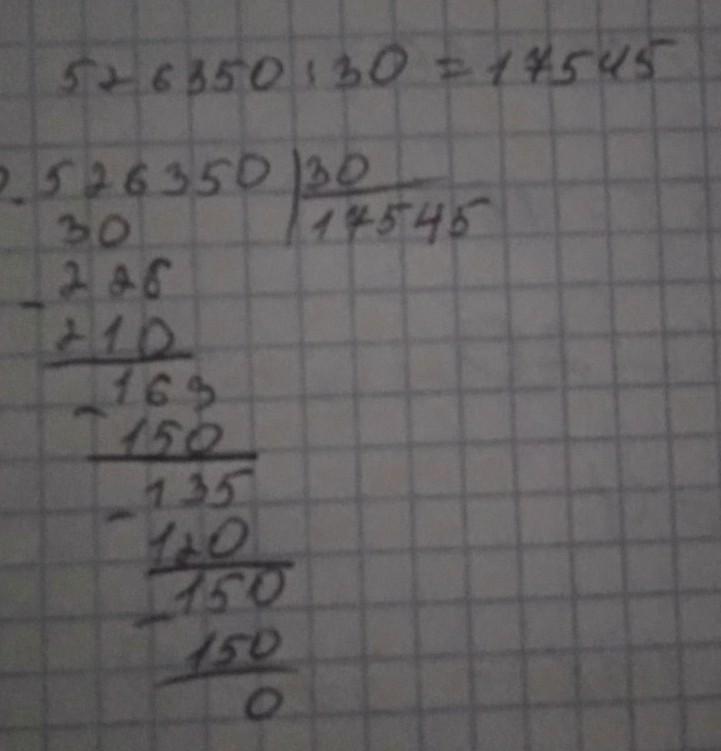 526350:30=17545
-526350|30
30 17545
-226
210
-163
150
-135
120
-150
150
0